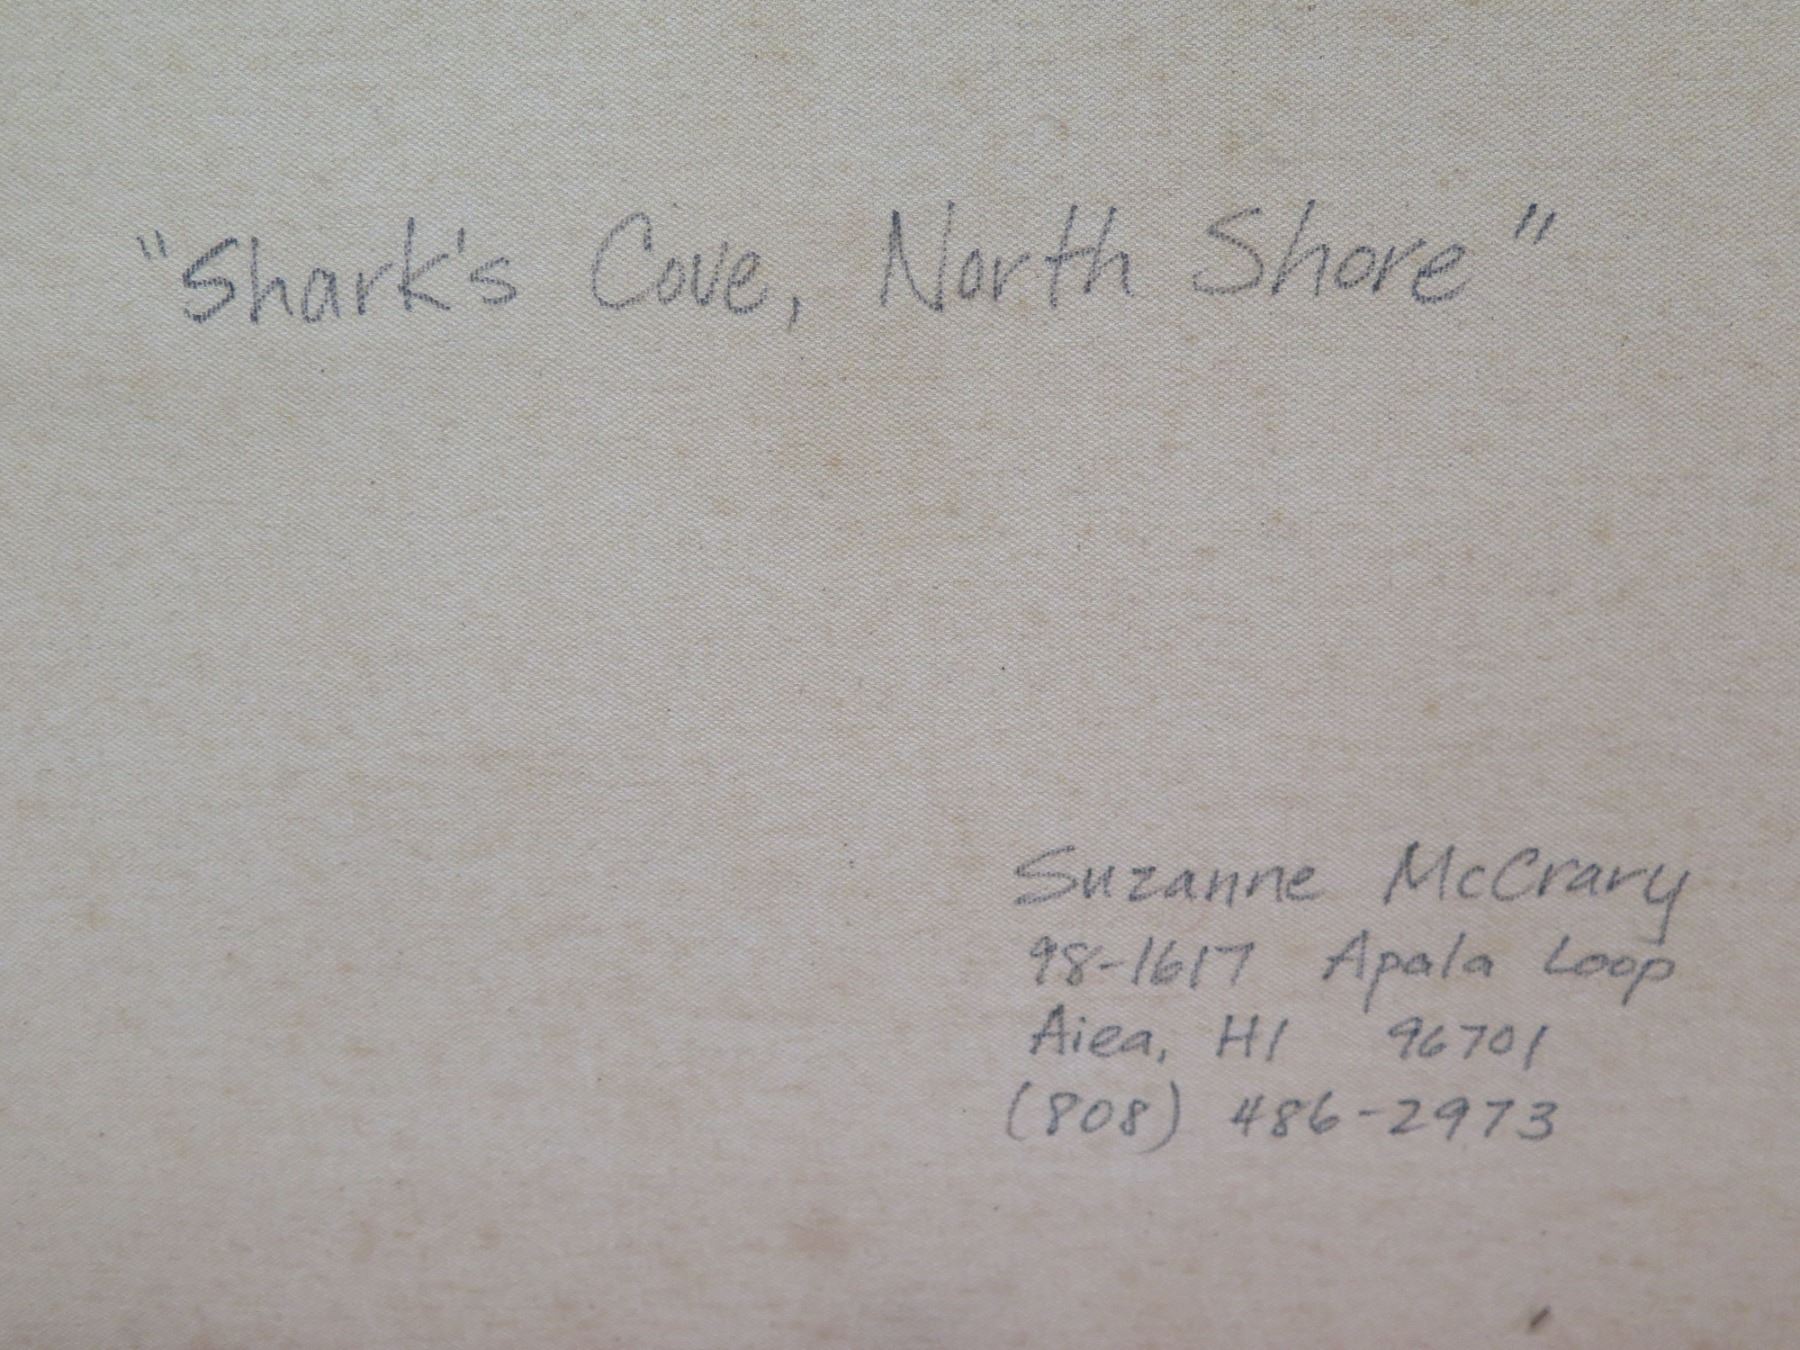 "Shark's Cove, North Shore"
Suzanne McCrary
98-1617 Apala Loop
Aiea, HI 96701
(808) 486-2973